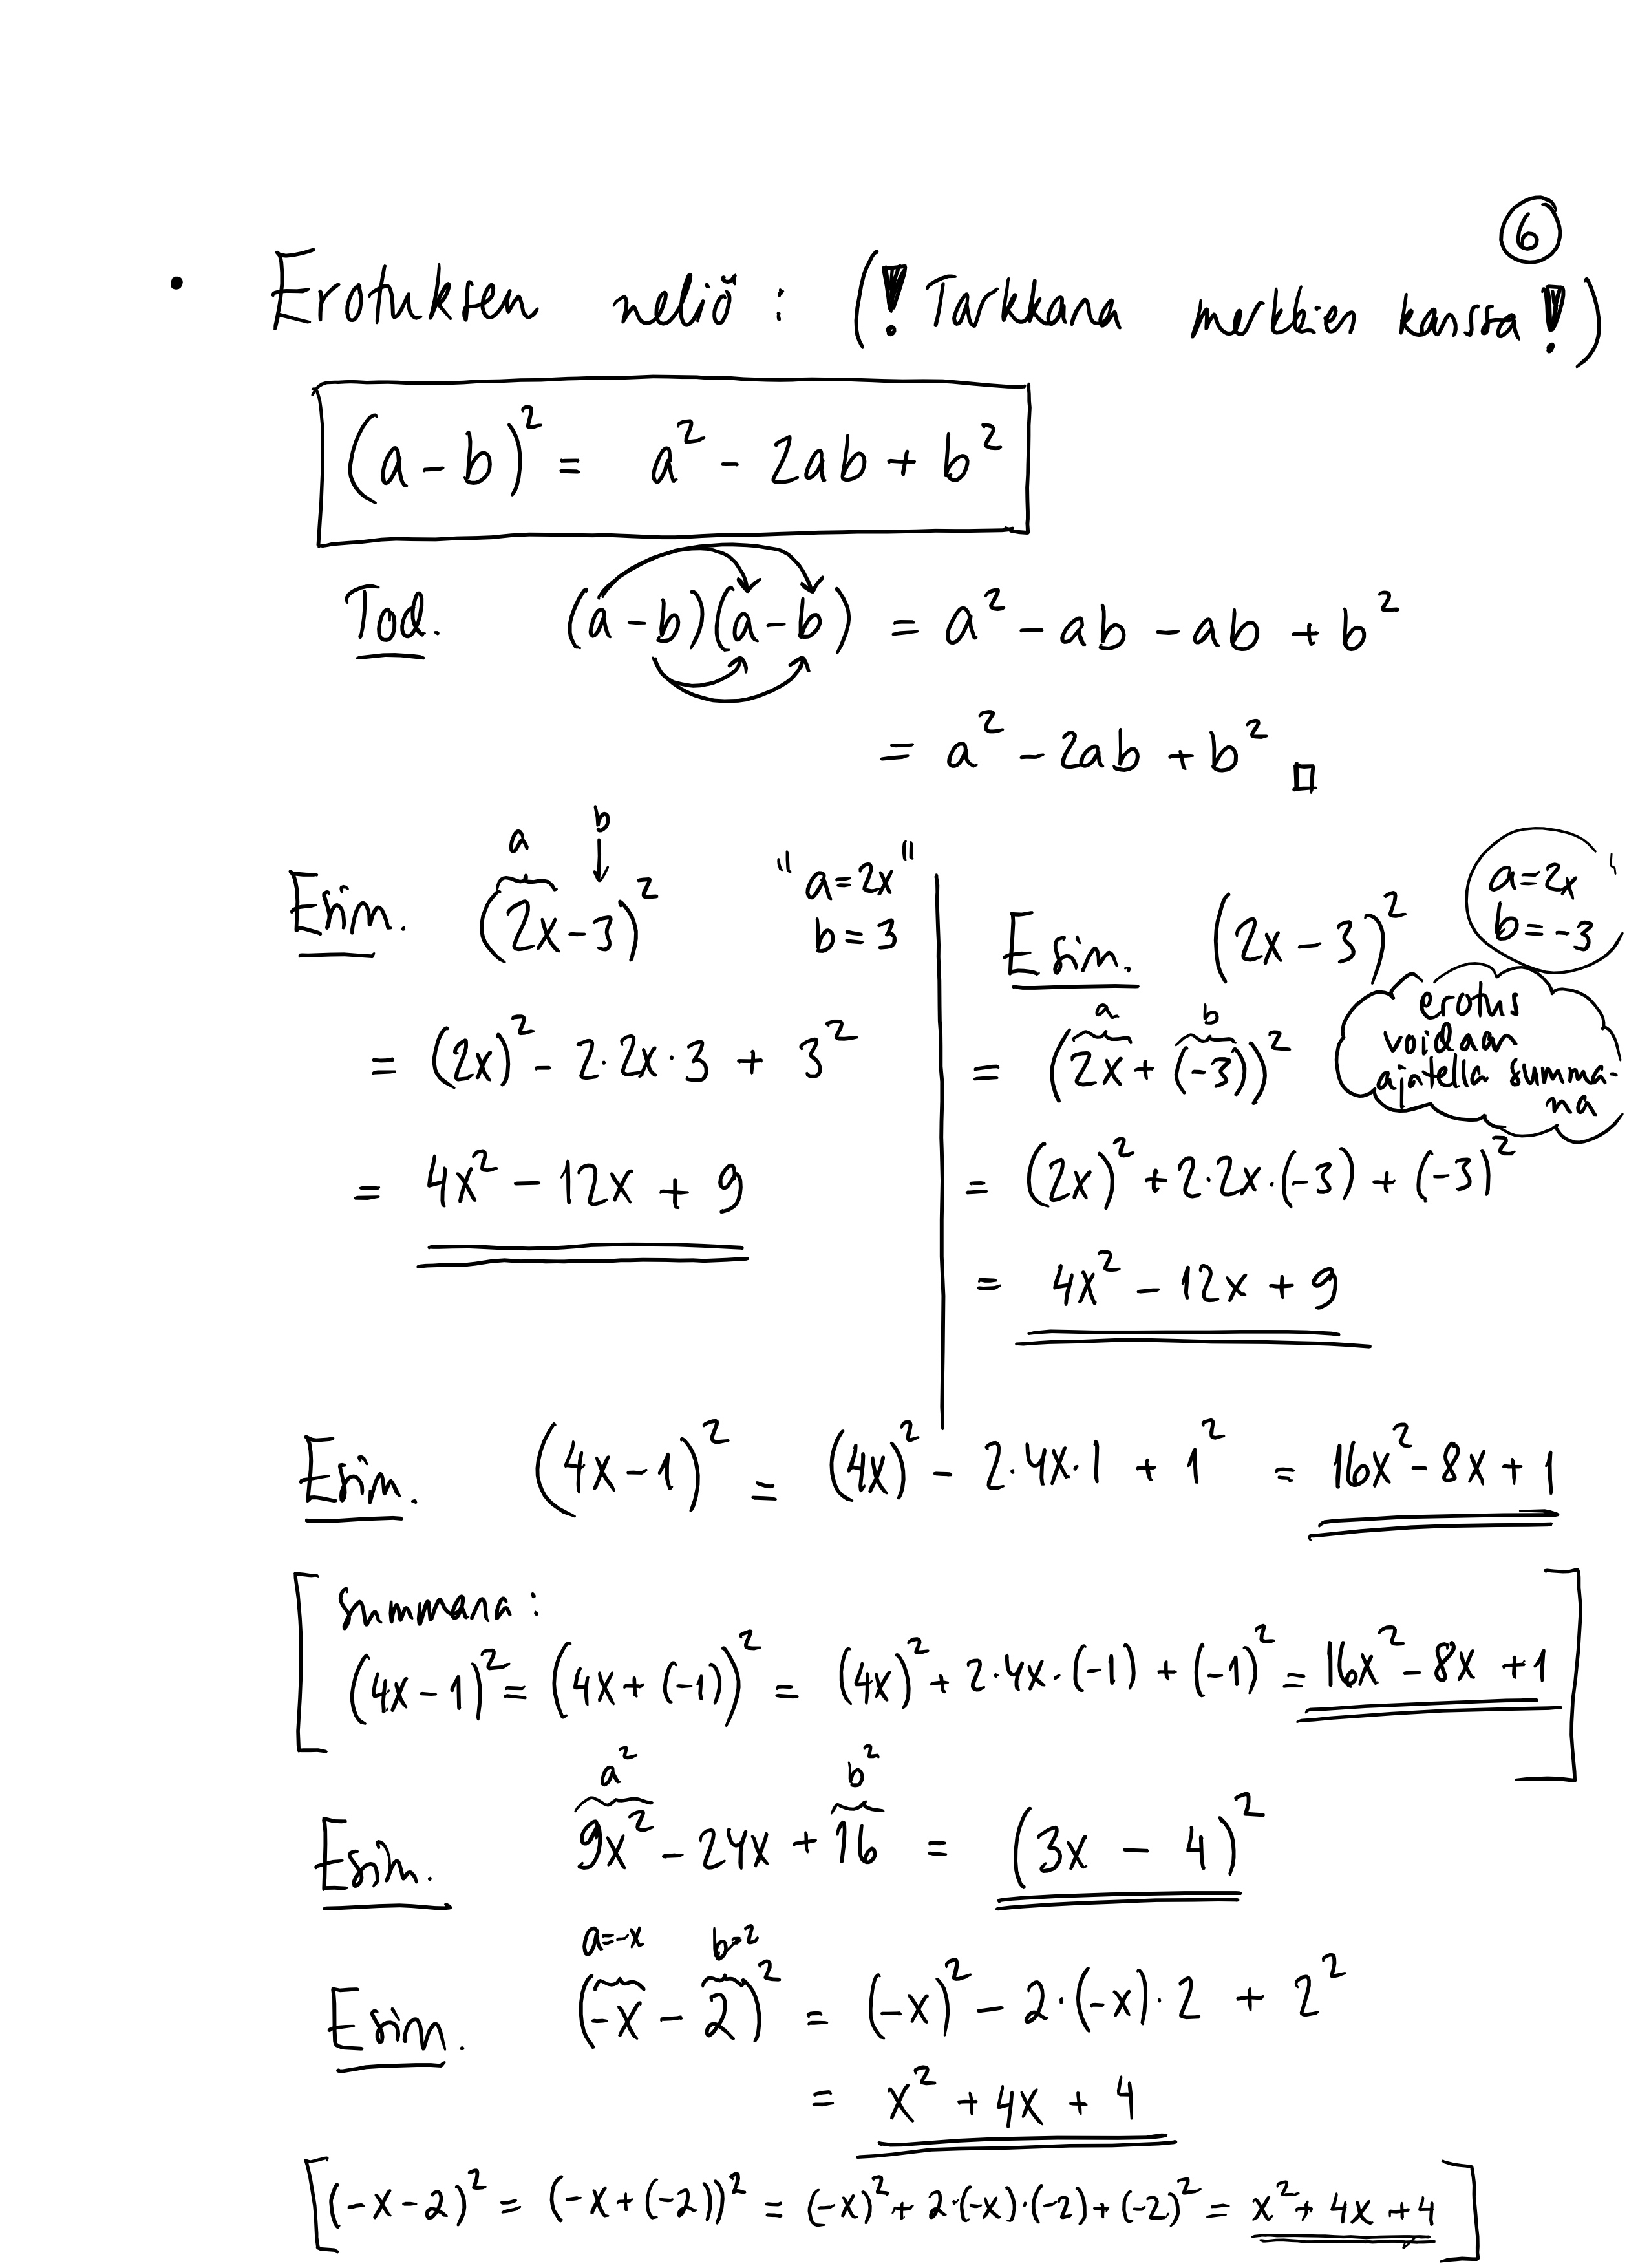 ⑥
• Erotuksen neliö : (! Tarkkana merkkien kanssa !)
(a - b)² = a² - 2ab + b²
Tod. (a - b)(a - b) = a² - ab - ab + b²
= a² - 2ab + b² □
a b
Esim. (2x - 3)² "a = 2x"
b = 3
= (2x)² - 2·2x·3 + 3²
= 4x² - 12x + 9
Esim. (2x - 3)²
a = 2x
b = -3
erotus
voidaan
ajatella summa-
na
a b
= (2x + (-3))²
= (2x)² + 2·2x·(-3) + (-3)²
= 4x² - 12x + 9
Esim. (4x - 1)² = (4x)² - 2·4x·1 + 1² = 16x² - 8x + 1
[ summana :
(4x - 1)² = (4x + (-1))² = (4x)² + 2·4x·(-1) + (-1)² = 16x² - 8x + 1 ]
a² b²
Esim. 9x² - 24x + 16 = (3x - 4)²
a=-x b=2
Esim. (-x - 2)² = (-x)² - 2·(-x)·2 + 2²
= x² + 4x + 4
[ (-x - 2)² = (-x + (-2))² = (-x)² + 2·(-x)·(-2) + (-2)² = x² + 4x + 4 ]